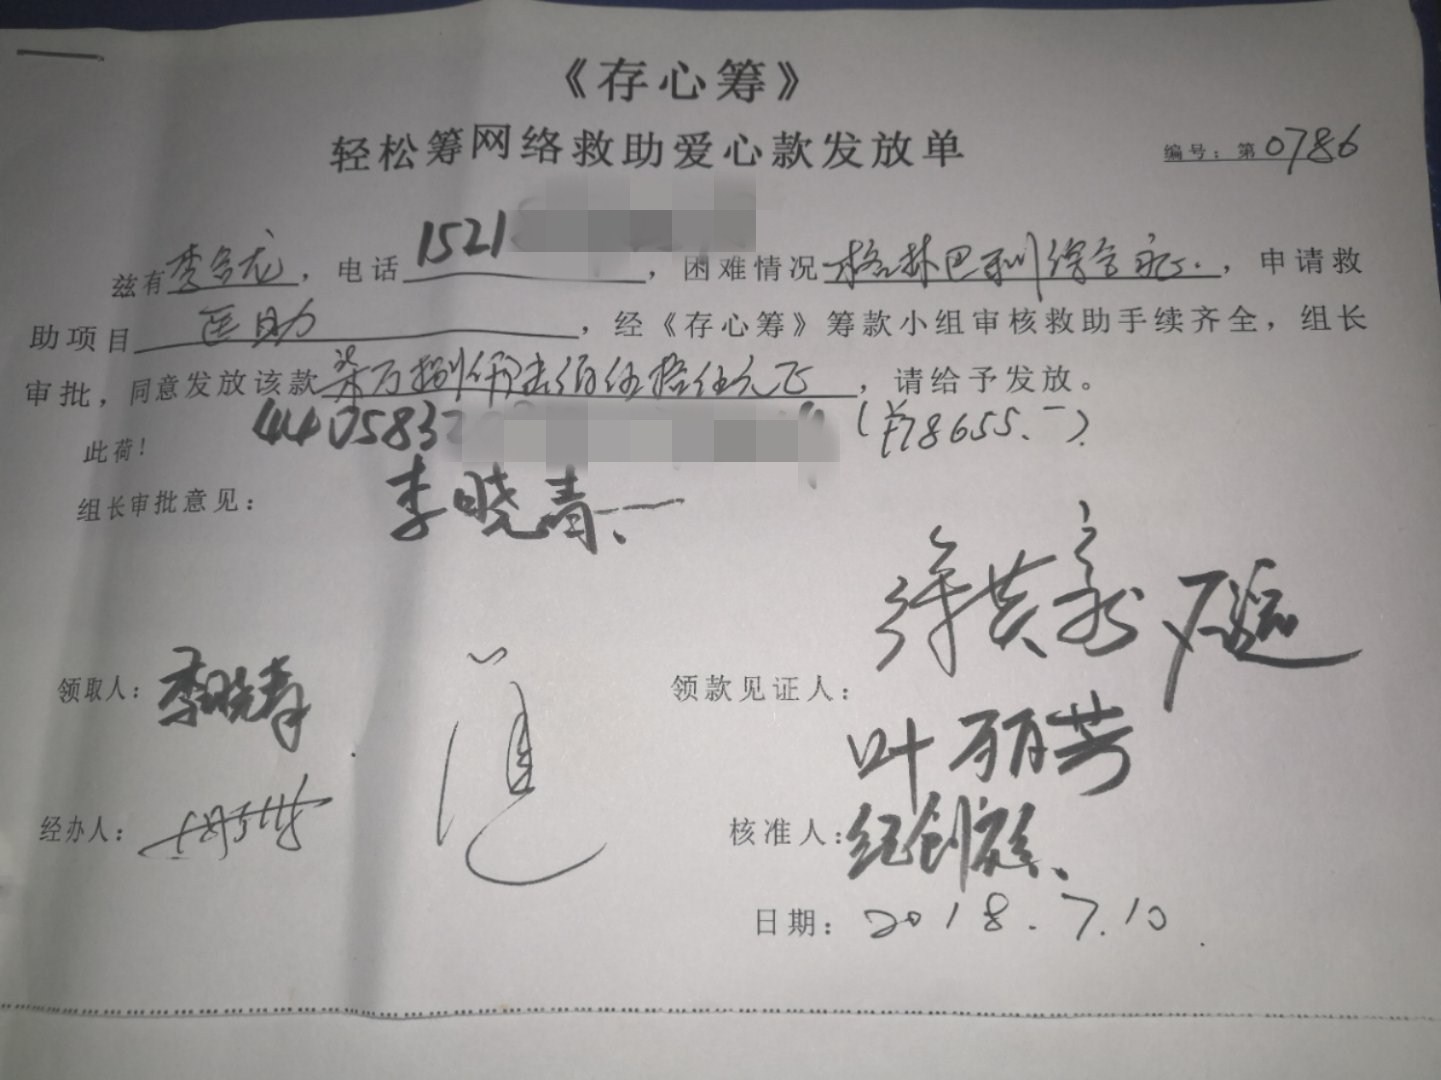 《存心筹》
轻松筹网络救助爱心款发放单
编号：第0786
兹有李, 电话1521, 困难情况格林巴利综合症., 申请救
助项目医助, 经《存心筹》筹款小组审核救助手续齐全, 组长
审批, 同意发放该款柒万捌仟陆佰伍拾伍元正, 请给予发放。
4405832 (¥78655.-)
此荷!
组长审批意见: 李晓青
领取人: 李晓春
领款见证人: 叶丽芳
经办人:
核准人: 纪创
日期: 2018.7.10